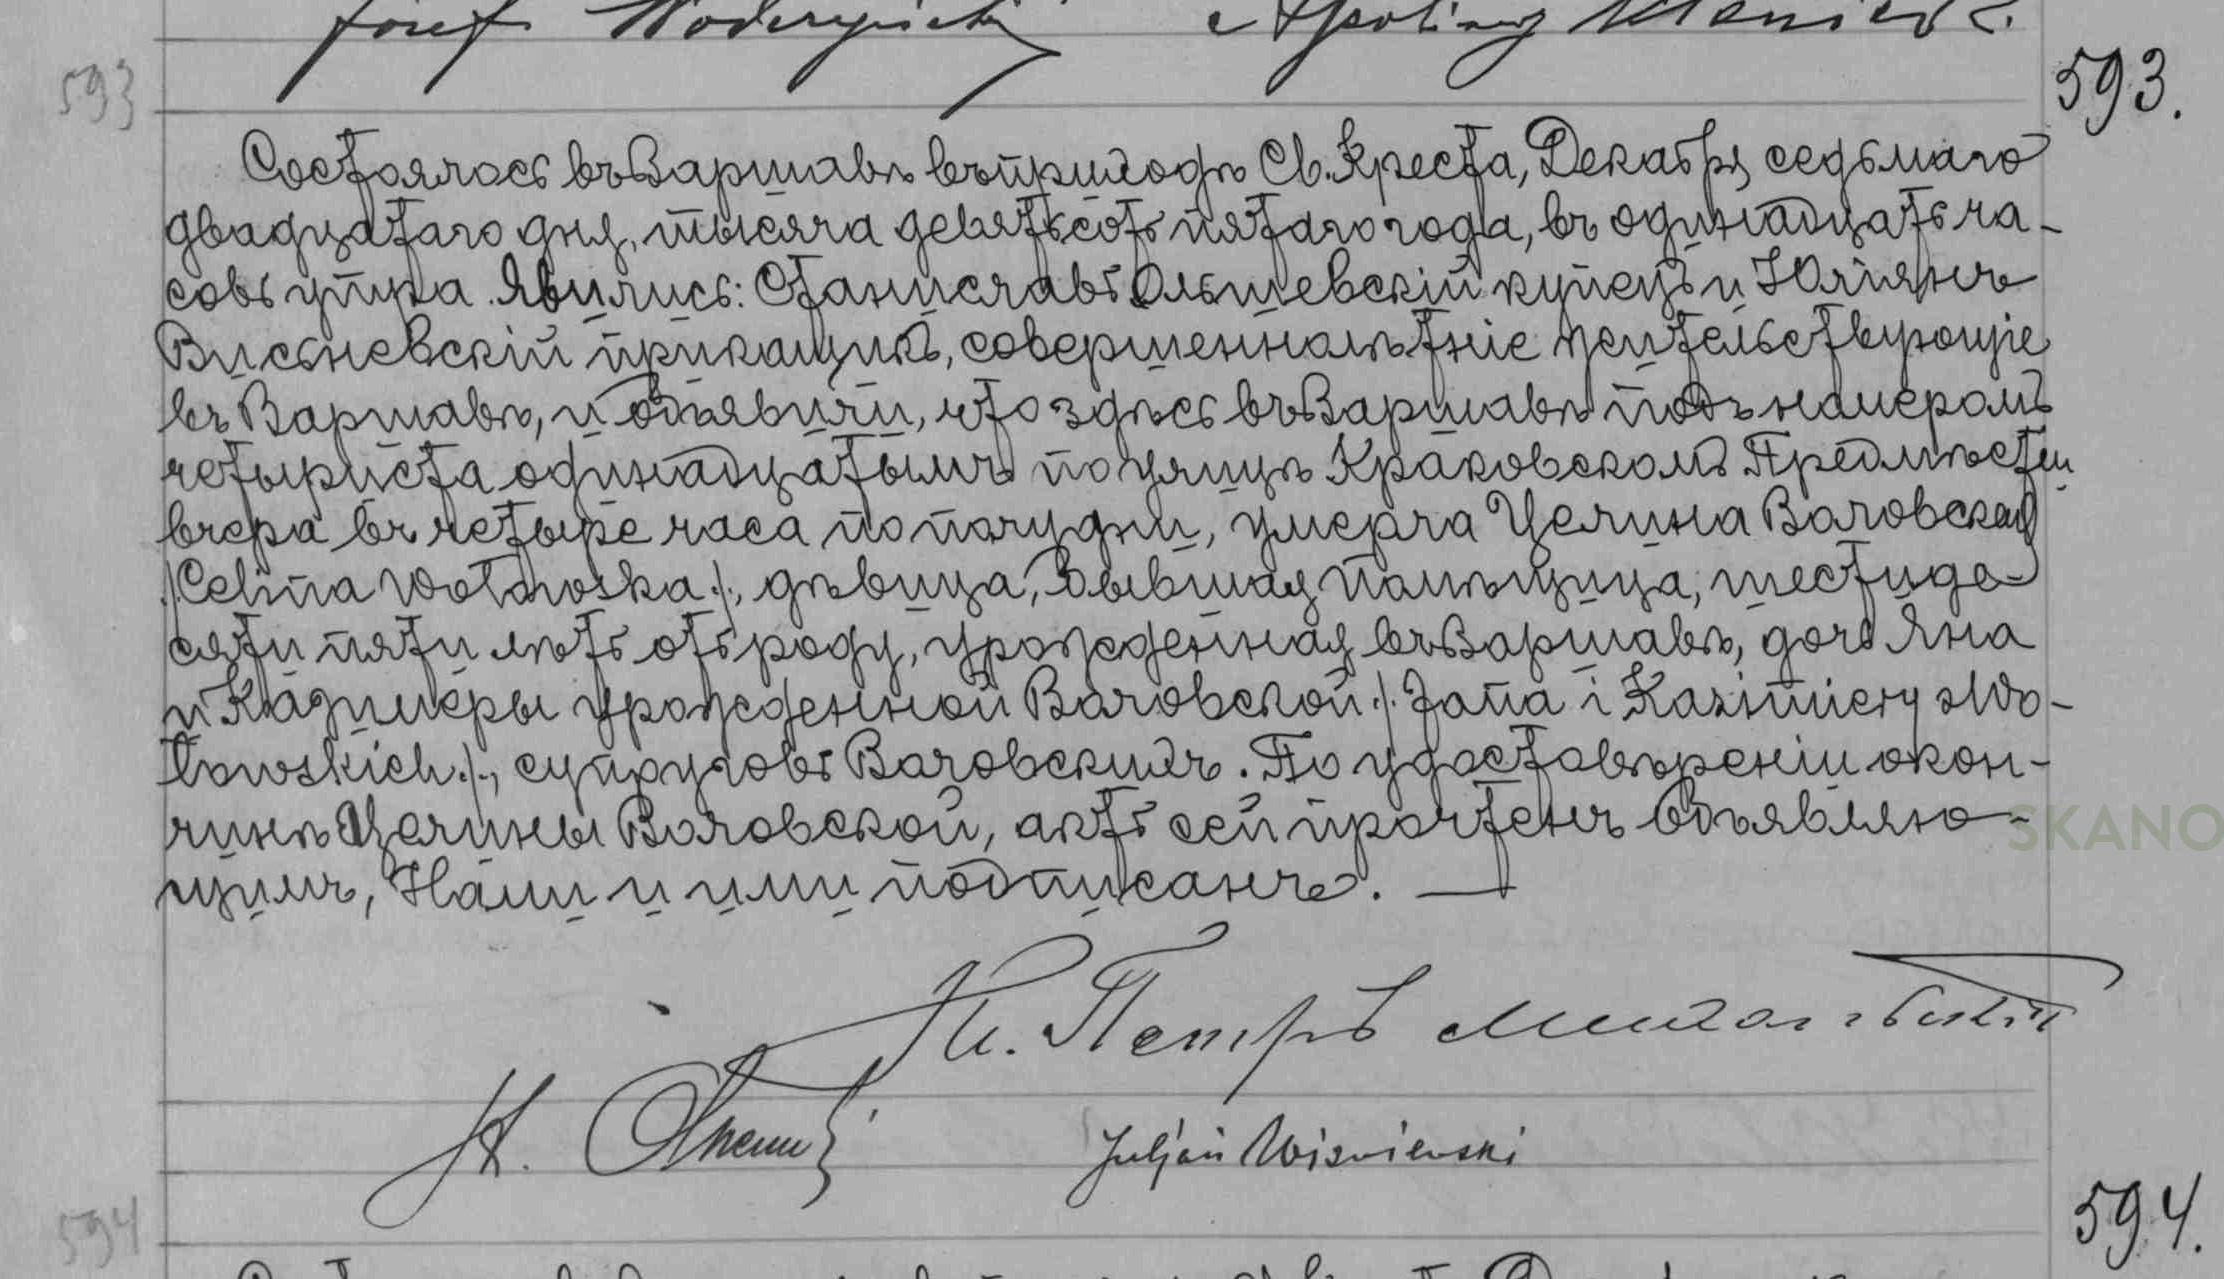 Józef
593
593.
Состоялось въ Варшавѣ въ приходѣ Св. Креста, Декабря седьмаго
двадцатаго дня, тысяча девятьсотъ пятаго года, въ одинадцать ча-
совъ утра. Явились: Станиславъ Ольшевскій купецъ и Юліянъ
Висьневскій прикащикъ, совершеннолѣтніе жительствующіе
въ Варшавѣ, и объявили, что здѣсь въ Варшавѣ подъ номеромъ
четыриста одинадцатымъ по улицѣ Краковскомъ Предмѣстьи
вчера въ четыре часа по полудни, умерла Целина Воловская
/:Celina Wołowska:/, дѣвица, бывшая помѣщица, шестиде-
сяти пяти лѣтъ отъ роду, урожденная въ Варшавѣ, дочь Яна
и Казимеры урожденной Воловской /:Jana i Kazimiery z Wo-
łowskich:/, супруговъ Воловскихъ. По удостовѣреніи о кон-
чинѣ Целины Воловской, актъ сей прочтенъ объявляю-
щимъ, Нами и ими подписанъ. —
Кс. Петръ
Juljan Wiśniewski
594
594.
SKANO